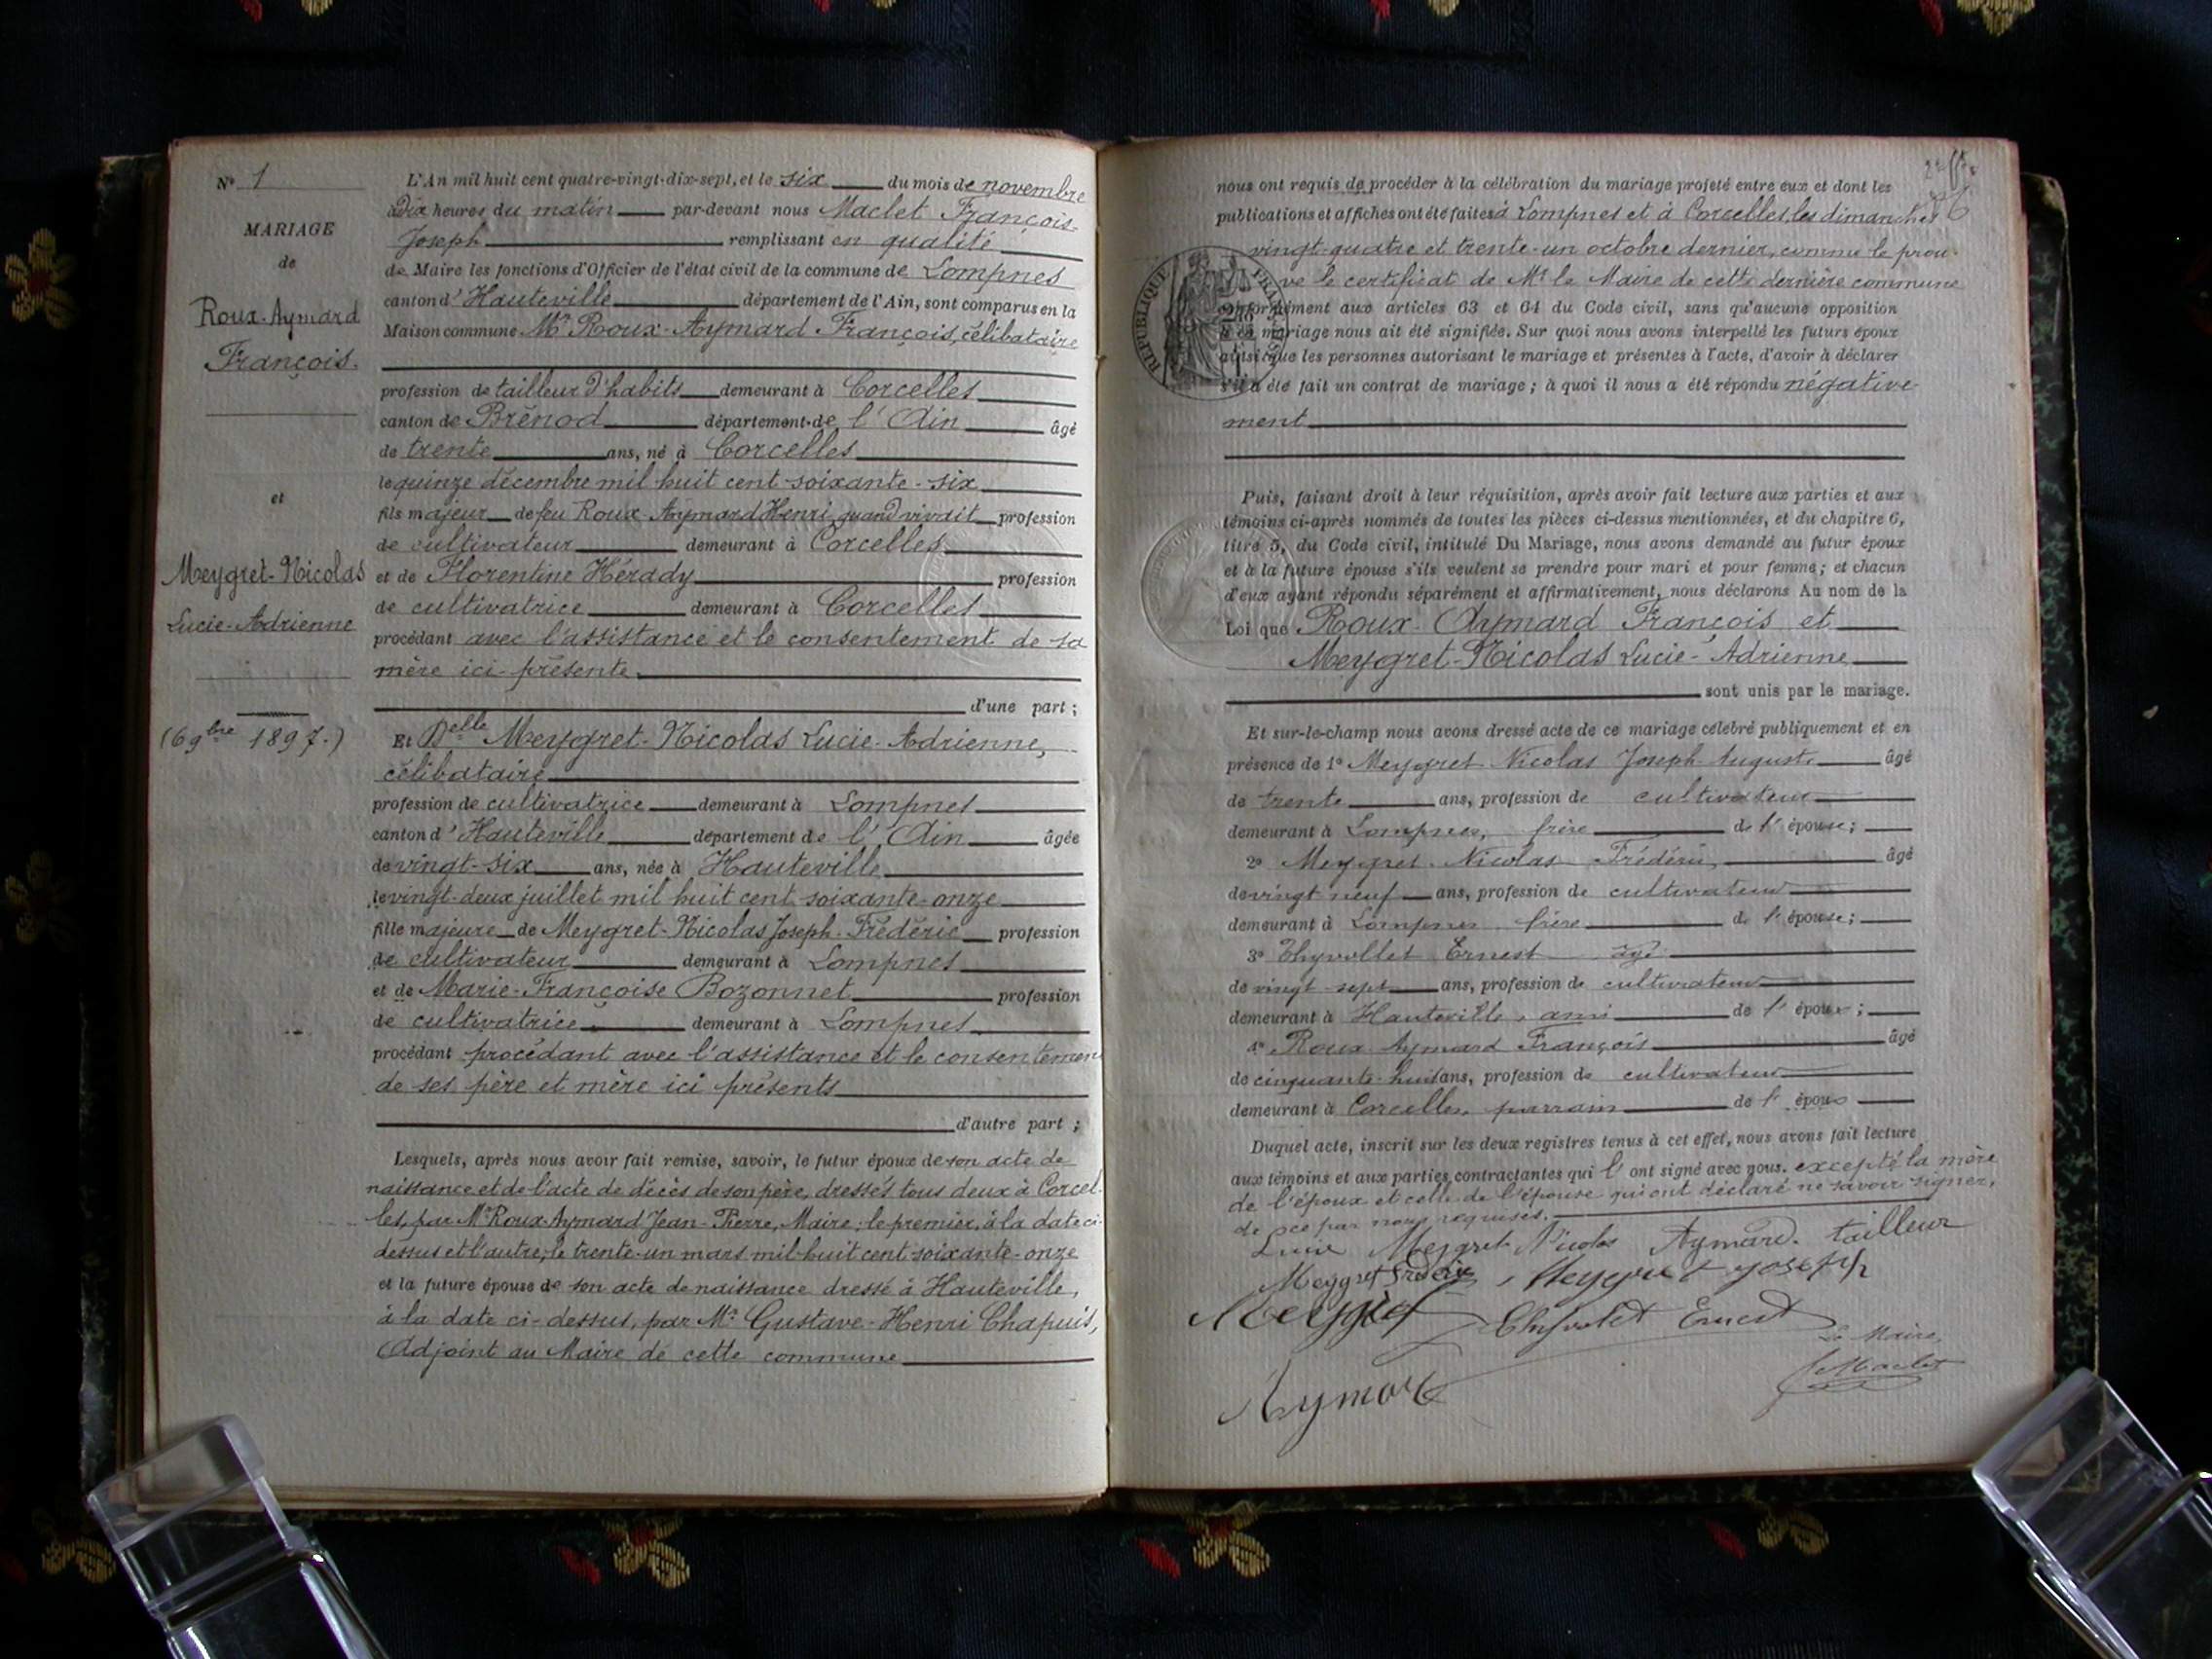 N° 1
MARIAGE
de
Roux-Aymard
François.
et
Meygret-Nicolas
Lucie-Adrienne
(6 9bre 1897.)
L'An mil huit cent quatre-vingt-dix-sept, et le six du mois de novembre
à Dix heures du matin par-devant nous Maclet François-
Joseph remplissant en qualité
de Maire les fonctions d'Officier de l'état civil de la commune de Lompnes
canton d'Hauteville département de l'Ain, sont comparus en la
Maison commune Mr Roux-Aymard François, célibataire
profession de tailleur d'habits demeurant à Corcelles
canton de Brénod département de l'Ain âgé
de trente ans, né à Corcelles
le quinze décembre mil huit cent soixante-six
fils majeur de feu Roux-Aymard Henri, quand vivait profession
de cultivateur demeurant à Corcelles
et de Florentine Hérady profession
de cultivatrice demeurant à Corcelles
procédant avec l'assistance et le consentement de sa
mère ici-présente
d'une part ;
Et Delle Meygret-Nicolas Lucie-Adrienne,
célibataire
profession de cultivatrice demeurant à Lompnes
canton d'Hauteville département de l'Ain âgée
de vingt-six ans, née à Hauteville
le vingt-deux juillet mil huit cent soixante-onze
fille majeure de Meygret-Nicolas Joseph-Frédéric profession
de cultivateur demeurant à Lompnes
et de Marie-Françoise Bozonnet profession
de cultivatrice demeurant à Lompnes
procédant procédant avec l'assistance et le consentement
de ses père et mère ici présents
d'autre part ;
Lesquels, après nous avoir fait remise, savoir, le futur époux de son acte de
naissance et de l'acte de décès de son père, dressés tous deux à Corcel-
les, par Mr Roux-Aymard Jean-Pierre, Maire; le premier, à la date ci-
dessus et l'autre, le trente-un mars mil huit cent soixante-onze
et la future épouse de son acte de naissance dressé à Hauteville,
à la date ci-dessus, par Mr Gustave-Henri Chapuis,
Adjoint au Maire de cette commune
nous ont requis de procéder à la célébration du mariage projeté entre eux et dont les
publications et affiches ont été faites à Lompnes et à Corcelles, les dimanches
vingt-quatre et trente-un octobre dernier, comme le prou-
ve le certificat de Mr le Maire de cette dernière commune
conformément aux articles 63 et 64 du Code civil, sans qu'aucune opposition
à ce mariage nous ait été signifiée. Sur quoi nous avons interpellé les futurs époux
ainsi que les personnes autorisant le mariage et présentes à l'acte, d'avoir à déclarer
s'il a été fait un contrat de mariage ; à quoi il nous a été répondu négative-
ment
RÉPUBLIQUE FRANÇAISE
Puis, faisant droit à leur réquisition, après avoir fait lecture aux parties et aux
témoins ci-après nommés de toutes les pièces ci-dessus mentionnées, et du chapitre 6,
titre 5, du Code civil, intitulé Du Mariage, nous avons demandé au futur époux
et à la future épouse s'ils veulent se prendre pour mari et pour femme; et chacun
d'eux ayant répondu séparément et affirmativement, nous déclarons Au nom de la
Loi que Roux-Aymard François et
Meygret-Nicolas Lucie-Adrienne
sont unis par le mariage.
Et sur-le-champ nous avons dressé acte de ce mariage célébré publiquement et en
présence de 1° Meygret-Nicolas Joseph Auguste âgé
de trente ans, profession de cultivateur
demeurant à Lompnes, frère de l'épouse;
2° Meygret-Nicolas Frédéric âgé
de vingt neuf ans, profession de cultivateur
demeurant à Lompnes frère de l'épouse;
3° Thyvollet Ernest âgé
de vingt-sept ans, profession de cultivateur
demeurant à Hauteville, ami de l'époux;
4° Roux-Aymard François âgé
de cinquante-huit ans, profession de cultivateur
demeurant à Corcelles, parrain de l'époux
Duquel acte, inscrit sur les deux registres tenus à cet effet, nous avons fait lecture
aux témoins et aux parties contractantes qui l'ont signé avec nous. excepté la mère
de l'époux et celle de l'épouse qui ont déclaré ne savoir signer,
de ce par nous requises.
Lucie Meygret Nicolas Aymard. tailleur
Meygret Frédéric Meygret Joseph
Meygret Thyvolet Ernest
Le Maire,
Aymar JMaclet